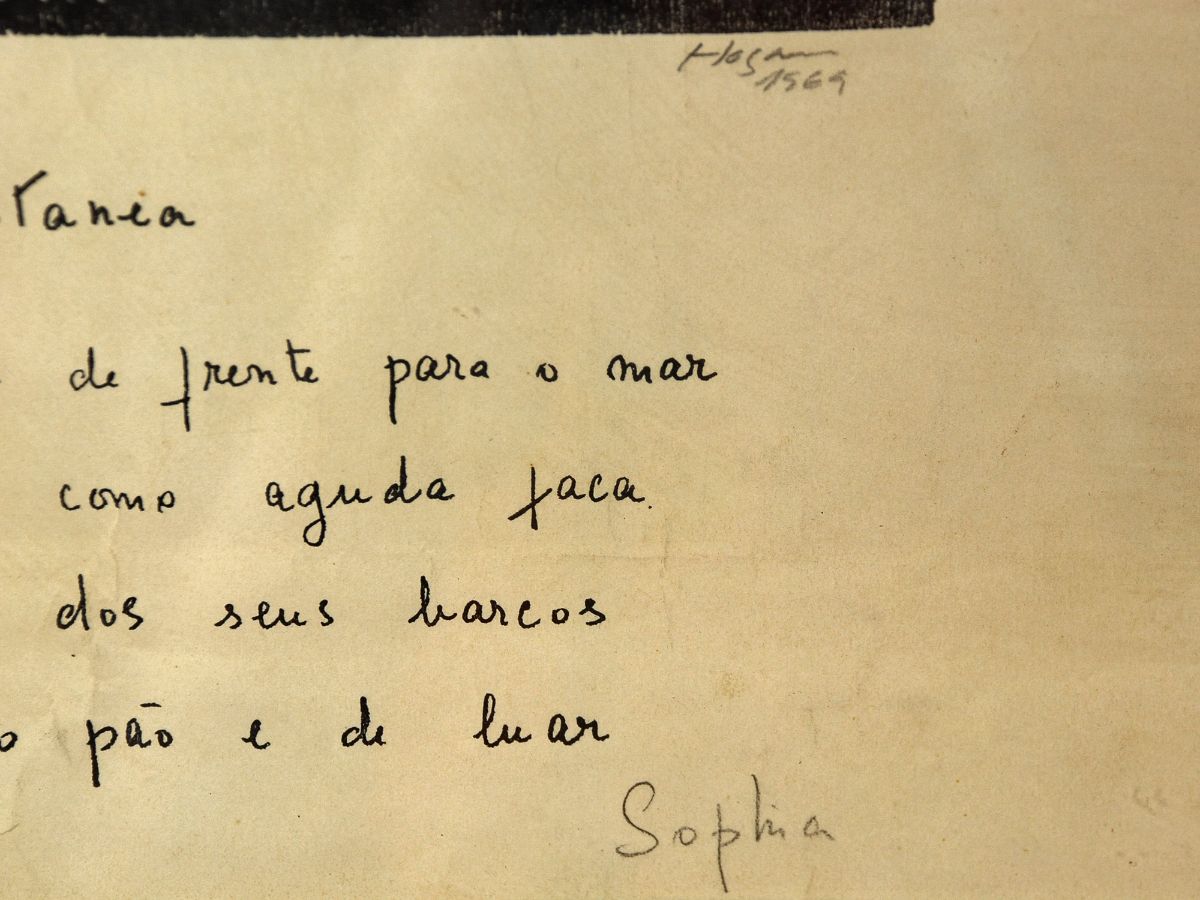 Hogan
1969
tania
de frente para o mar
como aguda faca
dos seus barcos
o pão e de luar
Sophia